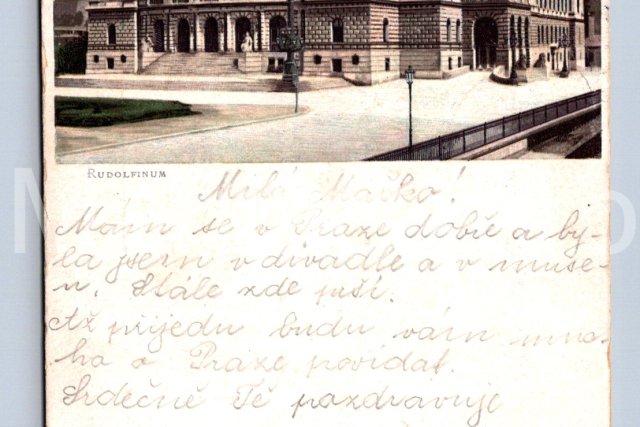 RUDOLFINUM
Milá Mačko!
Mám se v Praze dobře a by-
la jsem v divadle a v muse-
u. Stále zde prší.
Až přijedu budu vám mno-
ho o Praze povídat.
Srdečně Tě pozdravuje